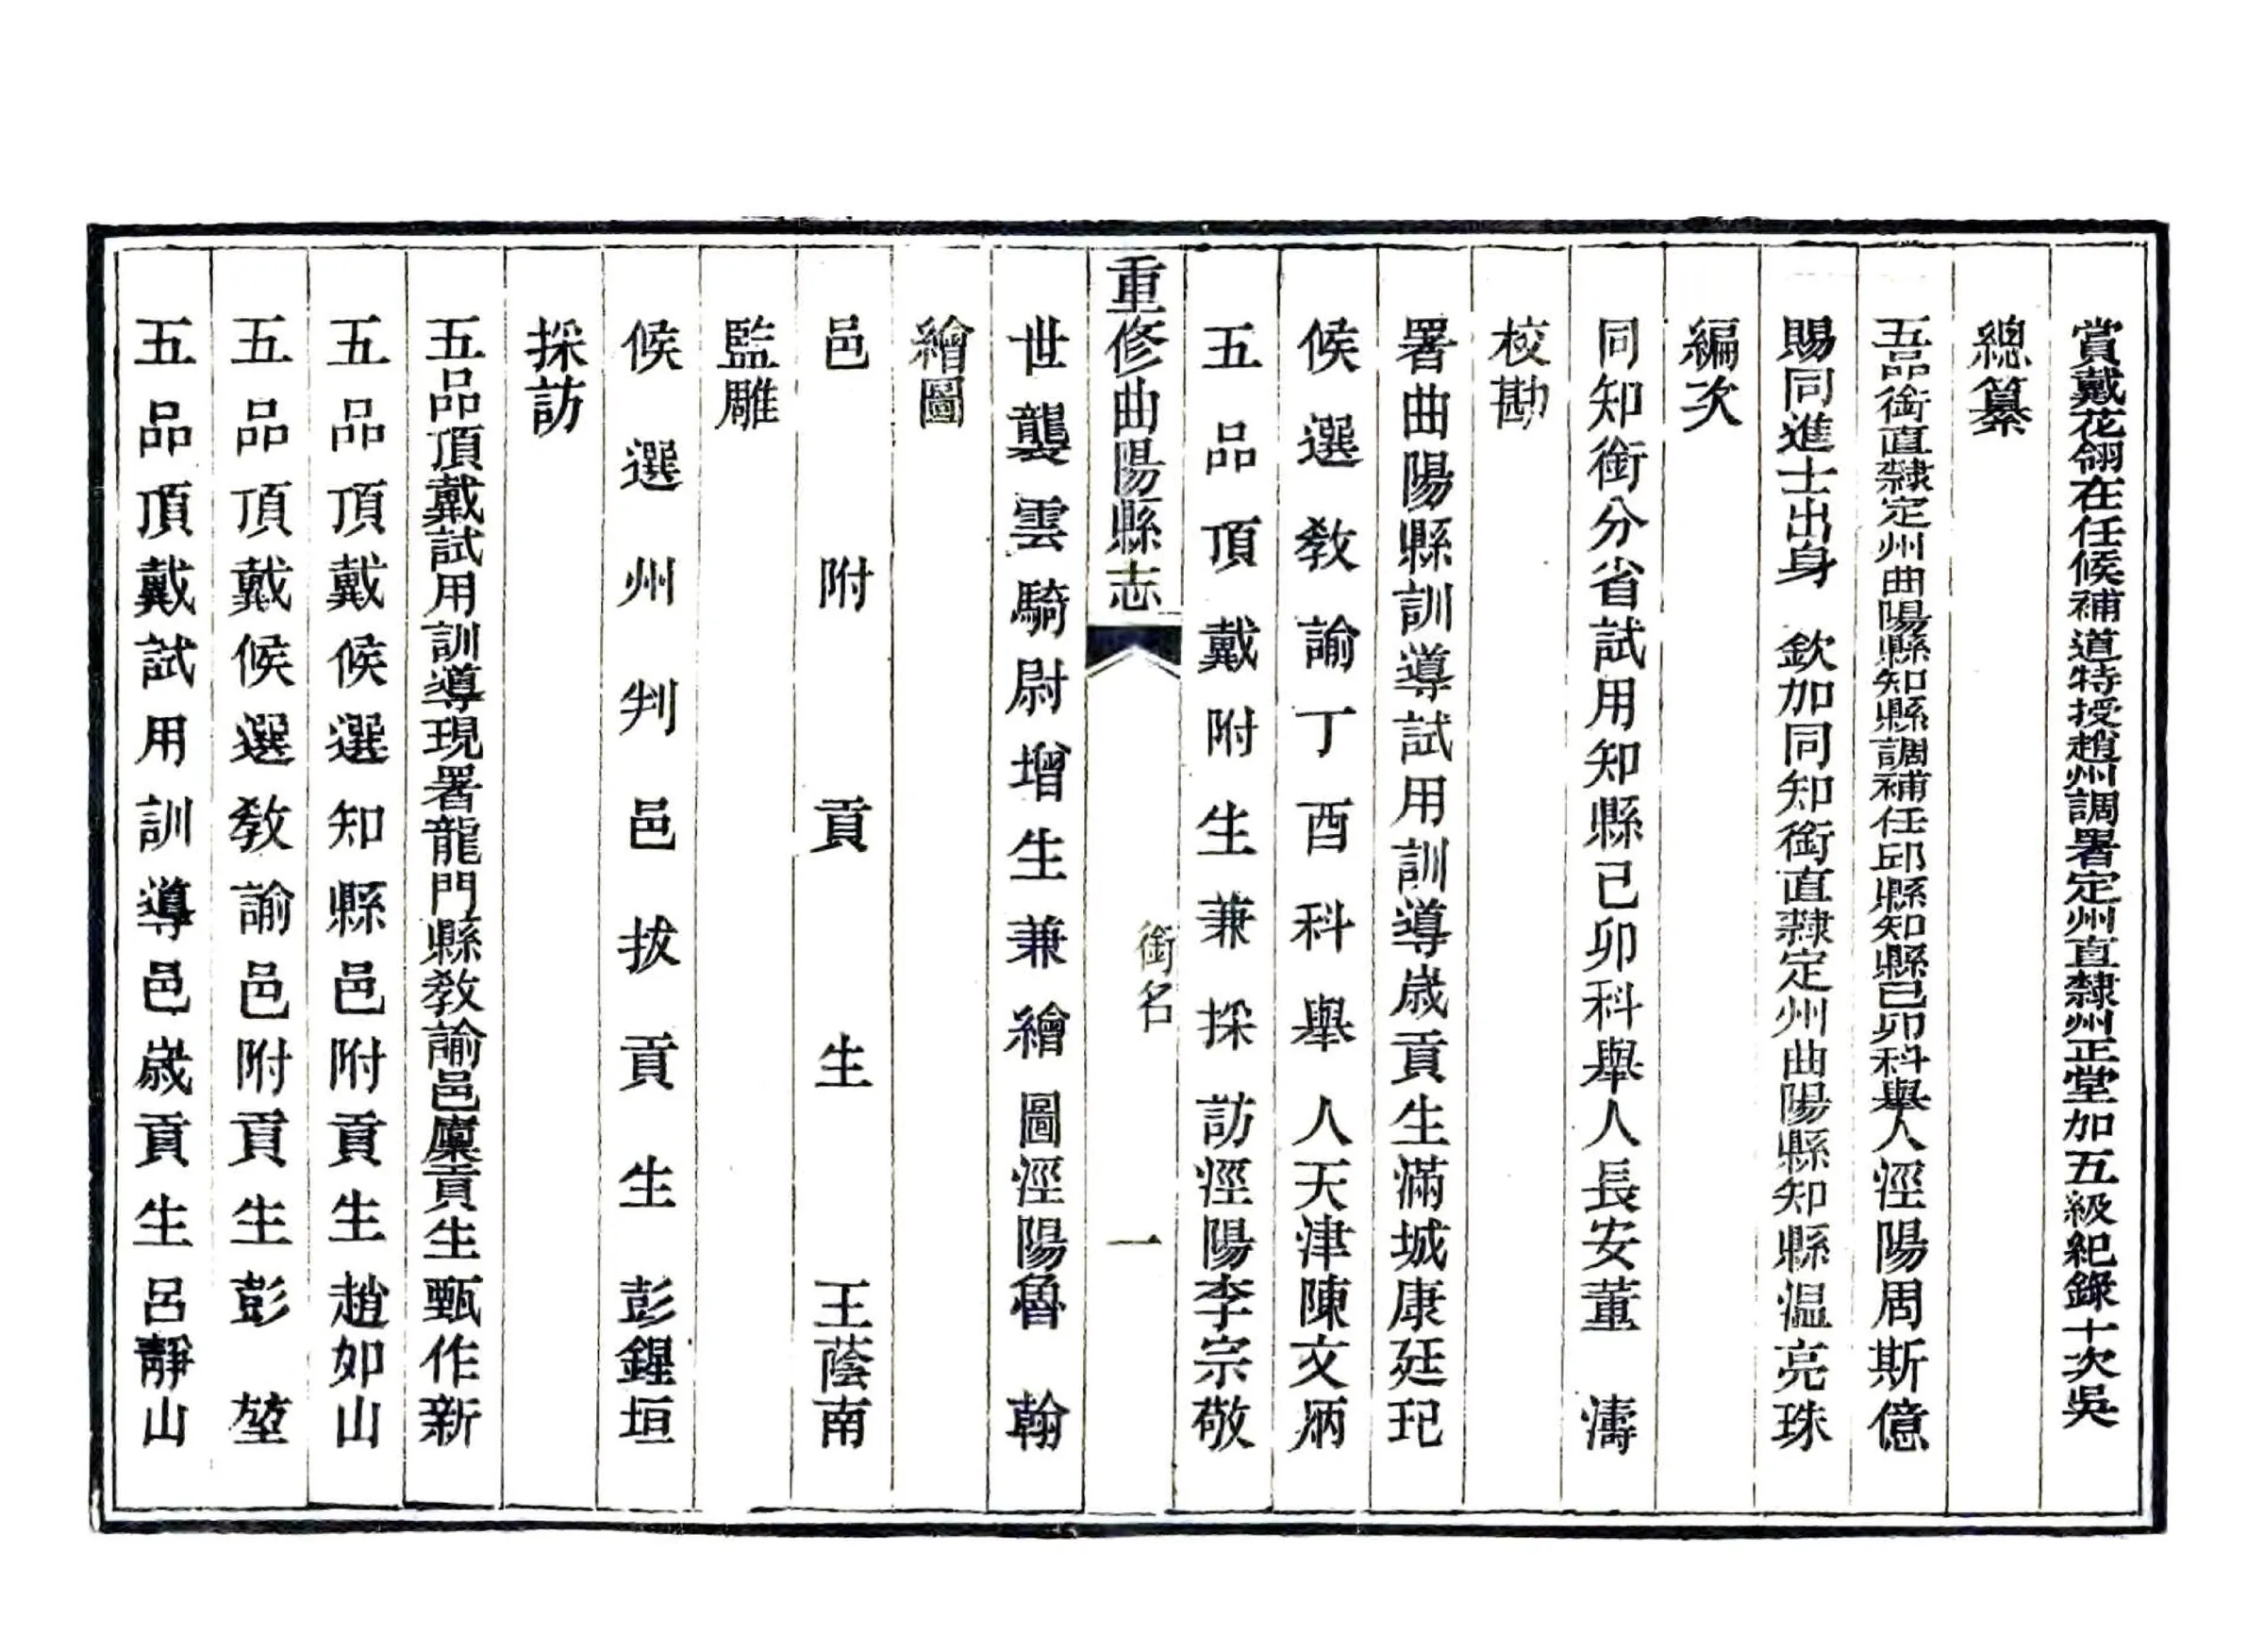 賞戴花翎在任候補道特授趙州調署定州直隸州正堂加五級紀錄十次吳
總纂
五品銜直隸定州曲陽縣知縣調補任邱縣知縣己卯科舉人涇陽周斯億
賜同進士出身　欽加同知銜直隸定州曲陽縣知縣溫亮珠
編次
同知銜分省試用知縣己卯科舉人長安董　濤
校勘
署曲陽縣訓導試用訓導歲貢生滿城康廷玘
候選教諭丁酉科舉人天津陳文炳
五品頂戴附生兼採訪涇陽李宗敬
重修曲陽縣志
銜名
一
世襲雲騎尉增生兼繪圖涇陽魯　翰
繪圖
邑附貢生王蔭南
監雕
候選州判邑拔貢生彭鍟垣
採訪
五品頂戴試用訓導現署龍門縣教諭邑廩貢生甄作新
五品頂戴候選知縣邑附貢生趙如山
五品頂戴候選教諭邑附貢生彭　堃
五品頂戴試用訓導邑歲貢生呂靜山